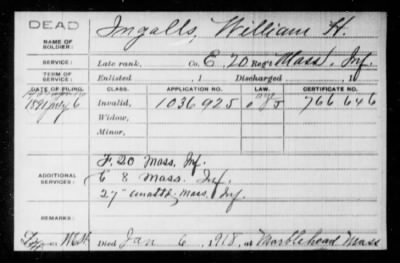 DEAD
NAME OF SOLDIER: Ingalls, William H.
SERVICE: Late rank, Co. E, 20 Reg't Mass. Inf.
TERM OF SERVICE: Enlisted , 1 Discharged , 1
DATE OF FILING. CLASS. APPLICATION NO. LAW. CERTIFICATE NO.
1891 July 6 Invalid, 1036925 766646
Widow,
Minor,
ADDITIONAL SERVICES: F. 20 Mass. Inf.
E 8 Mass. Inf.
27" unattd. Mass. Inf.
REMARKS:
Died Jan 6, 1918, at Marblehead Mass